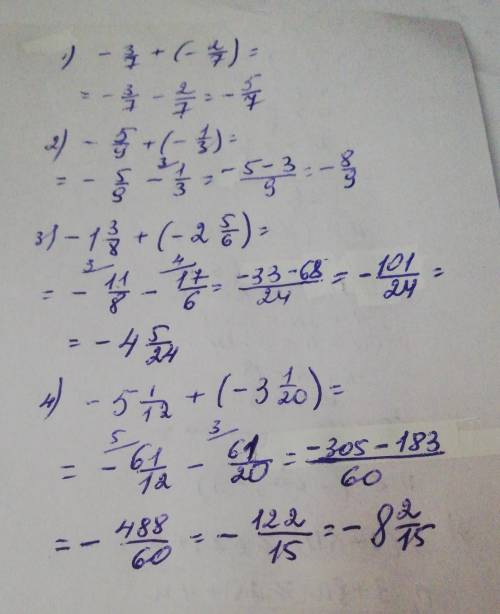 1) - 3/7 + (- 2/7) =
= - 3/7 - 2/7 = - 5/7
2) - 5/9 + (- 1/3) =
= - 5/9 - ³⁄ 1/3 = (-5-3)/9 = - 8/9
3) - 1 3/8 + (- 2 5/6) =
= - ³⁄ 11/8 - ⁴⁄ 17/6 = (-33-68)/24 = - 101/24 =
= - 4 5/24
4) - 5 1/12 + (- 3 1/20) =
= - ⁵⁄ 61/12 - ³⁄ 61/20 = (-305-183)/60
= - 488/60 = - 122/15 = - 8 2/15